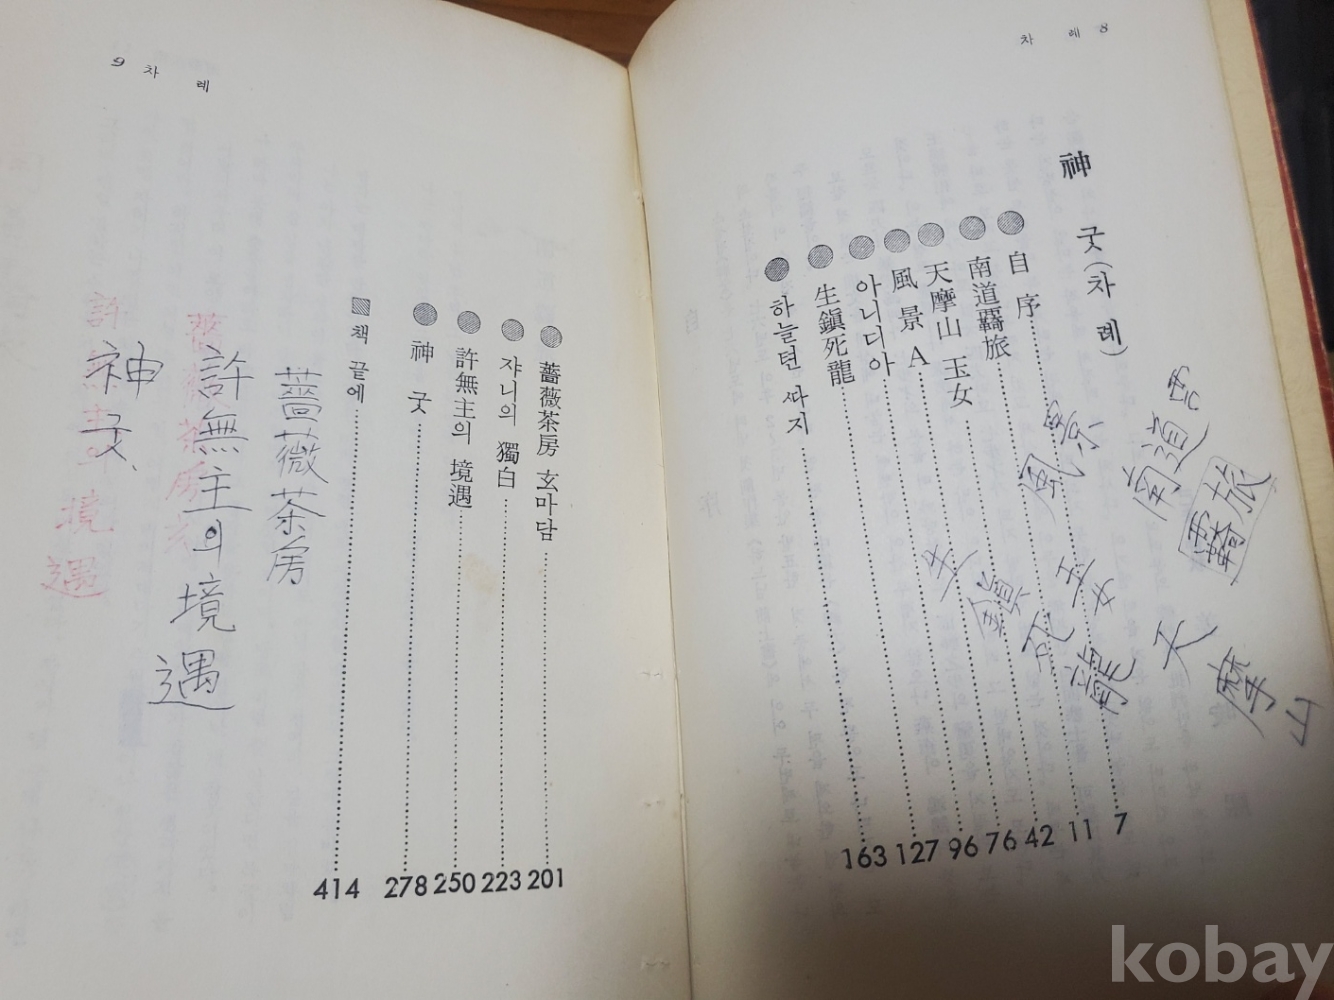 차 례 8
神 굿 (차 례)
自 序 7
南道羇旅 11
天摩山 玉女 42
風 景 A 76
아니디아 96
生鎭死龍 127
하늘텬 싸지 163
風景
南道
羇旅
玉女
天摩山
鎭
龍
9 차 례
薔薇茶房 玄마담 201
쟈니의 獨白 223
許無主의 境遇 250
神 굿 278
책 끝에 414
薔薇茶房
許無主의 境遇
神굿
境遇
kobay